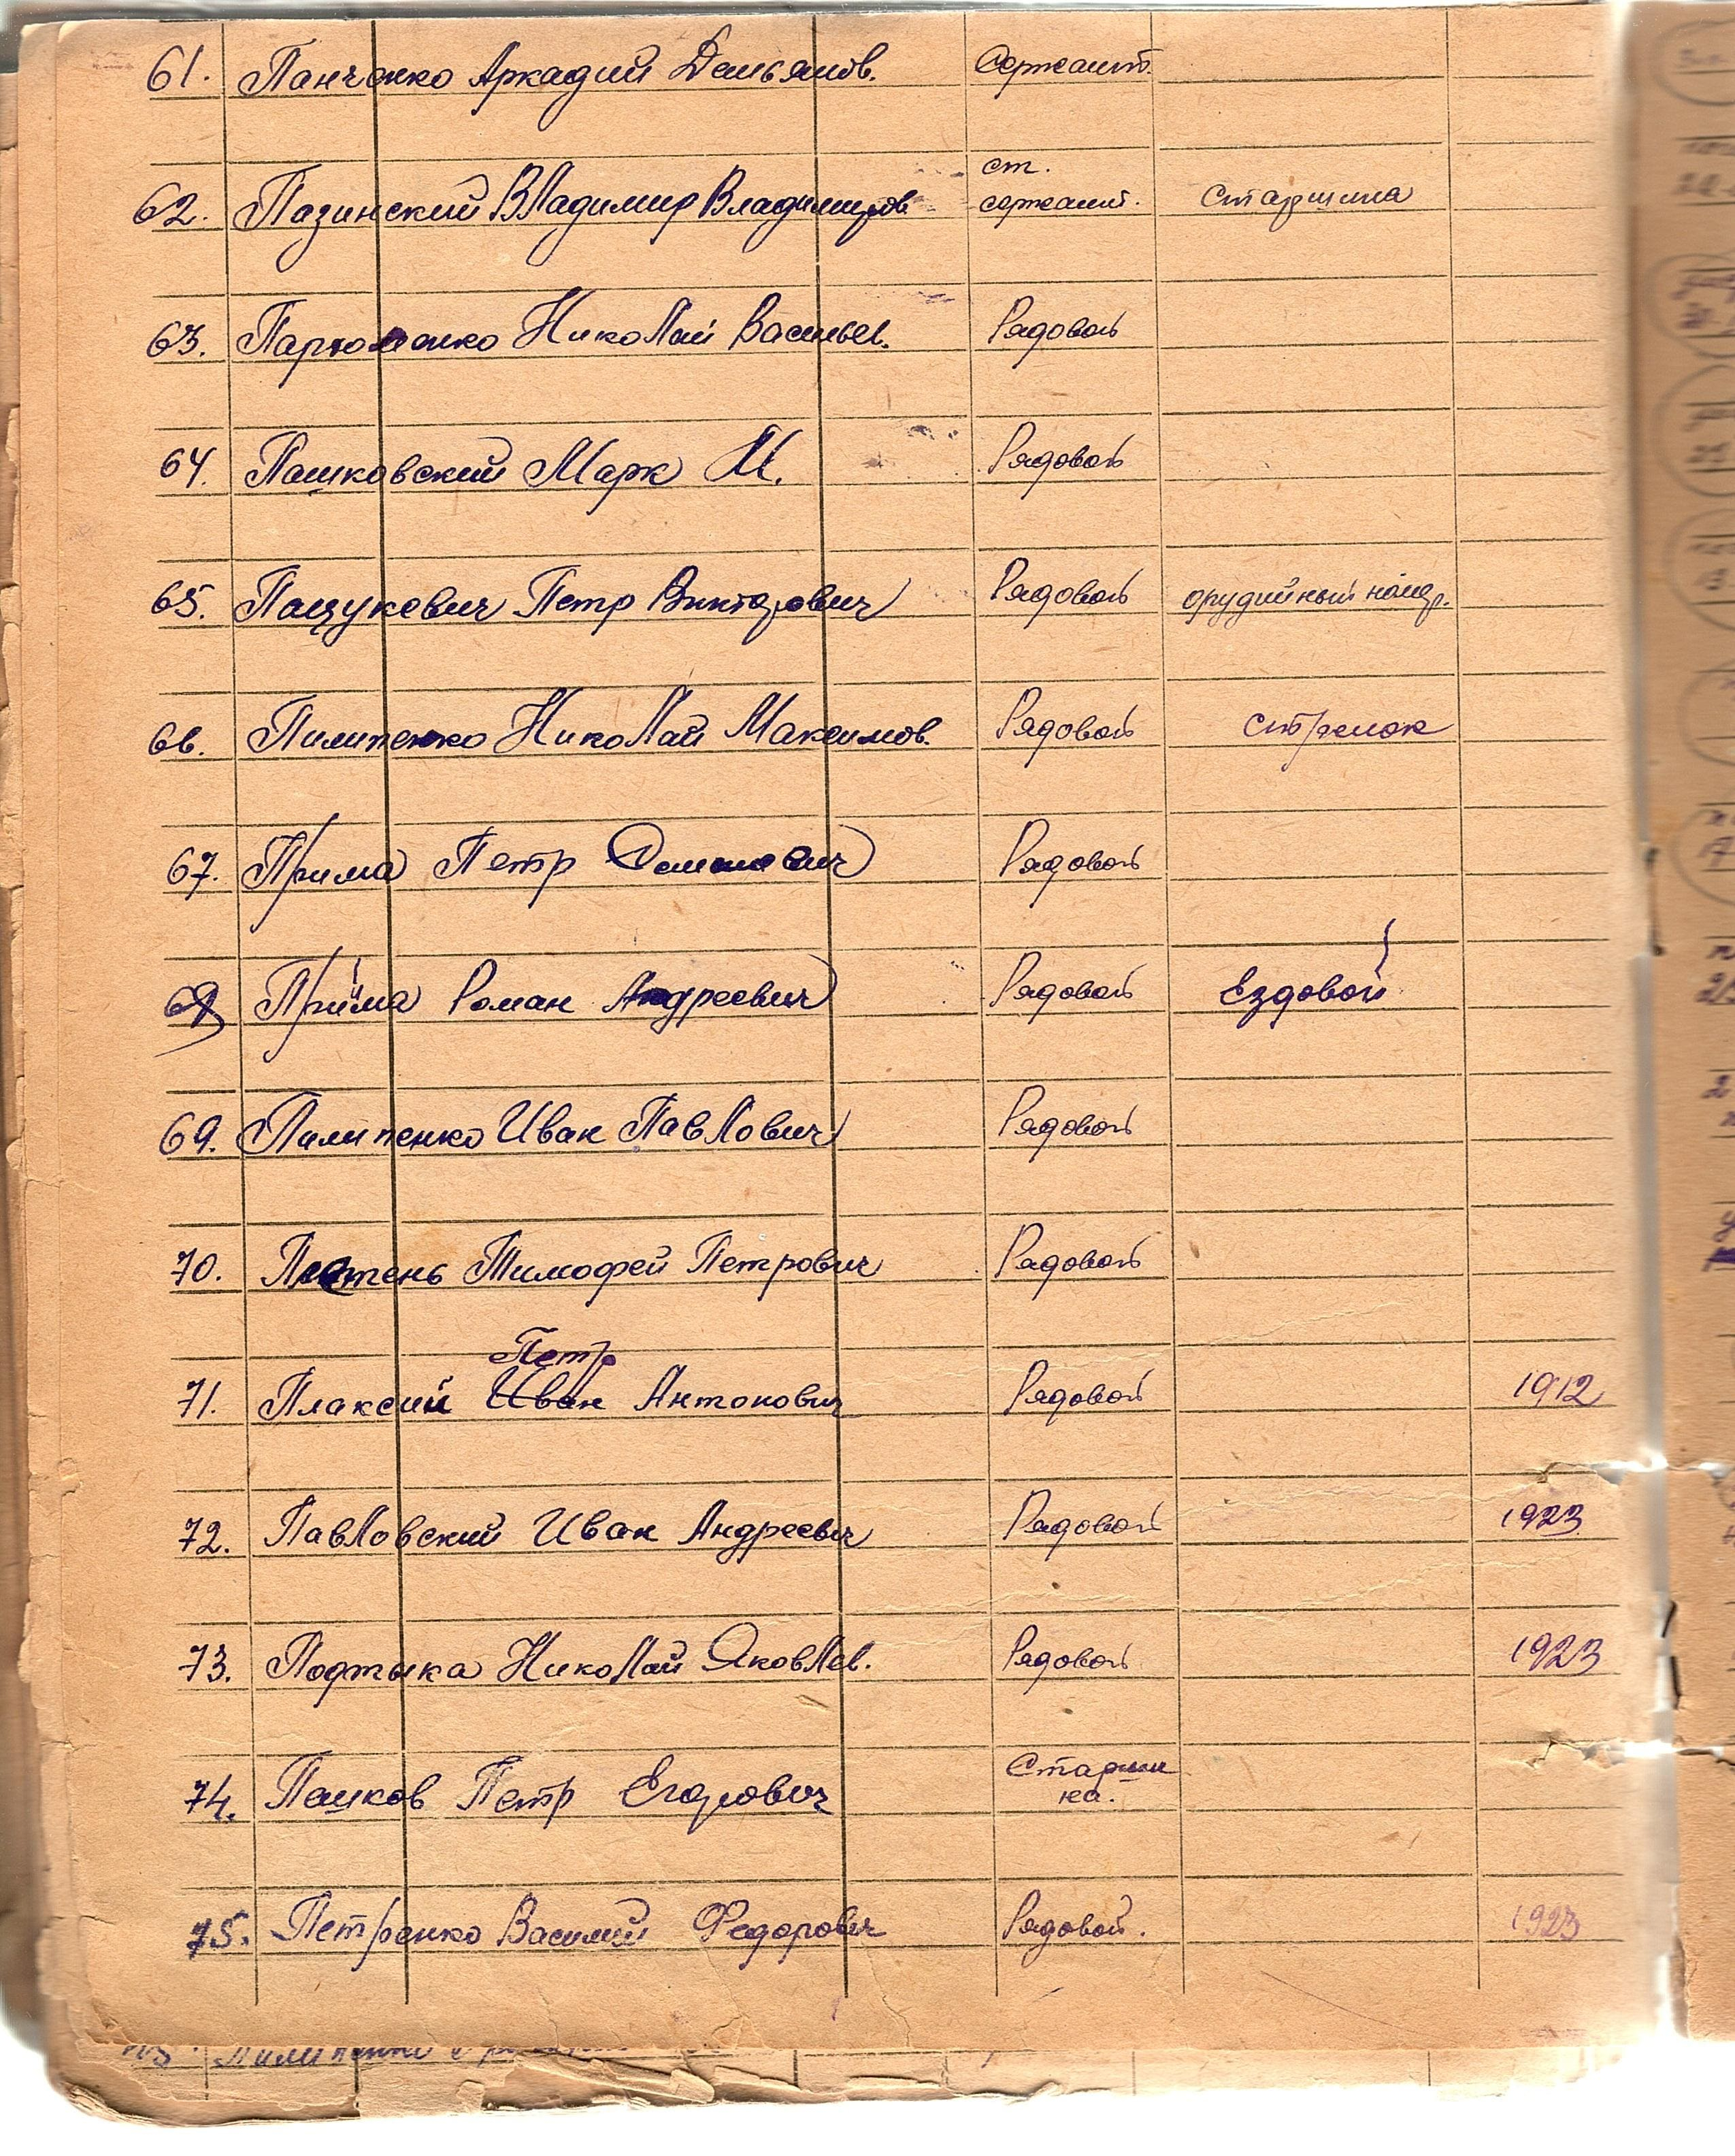 61. Панченко Аркадий Демьянов. Сержант.
ст.
62. Пазинский Владимир Владимиров сержант. Старшина
63. Пархоменко Николай Васильев. Рядовой
64. Пашковский Марк М. Рядовой
65. Пацукевич Петр Викторович Рядовой орудийный номер.
66. Пилипенко Николай Максимов. Рядовой стрелок
67. Прима Петр Рядовой
68 Прийма Роман Андреевич Рядовой Ездовой
69. Пилипенко Иван Павлович Рядовой
70. Тимофей Петрович Рядовой
Петр
71. Плаксий Иван Антонович Рядовой 1912
72. Павловский Иван Андреевич Рядовой 1923
73. Подтыка Николай Яковлев. Рядовой 1923
Старши
74. Пешков Петр Егорович на.
75. Петренко Василий Федорович Рядовой. 1923